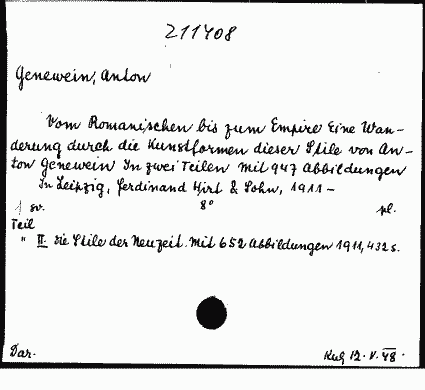 211408
Genewein, Anton
Vom Romanischen bis zum Empire Eine Wan-
derung durch die Kunstformen dieser Stile von An-
ton Genewein In zwei Teilen Mit 947 Abbildungen
In Leipzig, Ferdinand Hirt & Sohn, 1911 -
1 sv. 8° pl.
Teil
" II. Die Stile der Neuzeit. Mit 652 Abbildungen 1911, 432 s.
Dar. 12. V. 48.